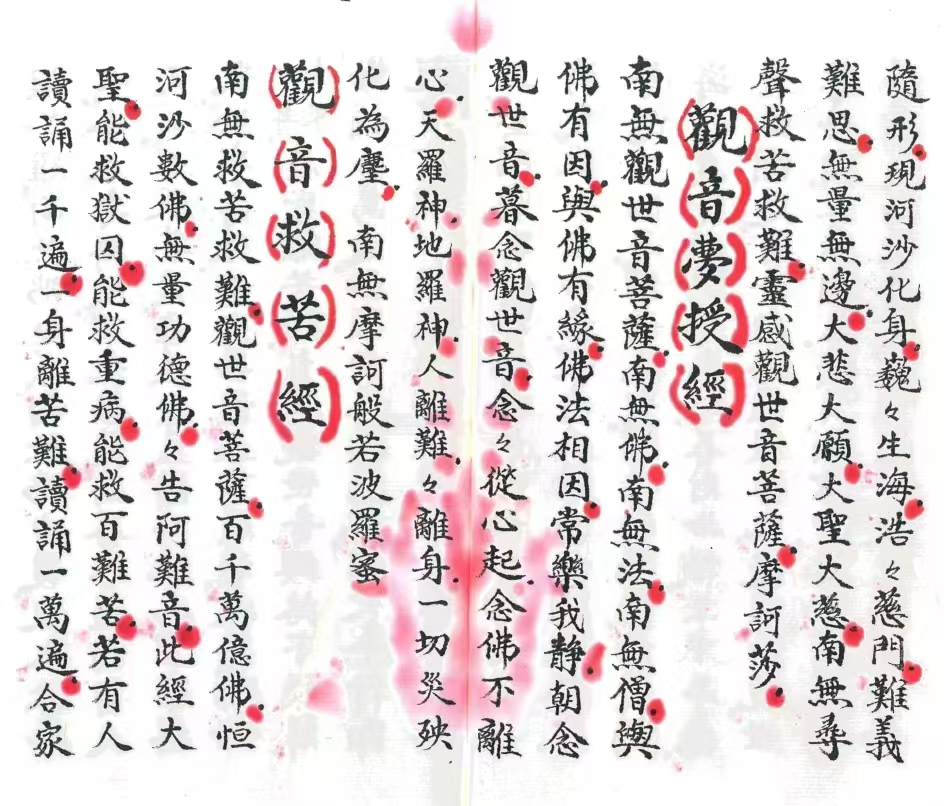 隨形現河沙化身巍々生海浩々慈門難義
難思無量無邊大悲大願大聖大慈南無尋
聲救苦救難靈感觀世音菩薩摩訶莎
(觀)(音)(夢)(授)(經)
南無觀世音菩薩南無佛南無法南無僧與
佛有因與佛有緣佛法相因常樂我静朝念
觀世音暮念觀世音念々從心起念佛不離
心天羅神地羅神人離難々離身一切災殃
化為塵南無摩訶般若波羅蜜
(觀)(音)(救)(苦)(經)
南無救苦救難觀世音菩薩百千萬億佛恒
河沙數佛無量功德佛々告阿難音此經大
聖能救獄囚能救重病能救百難苦若有人
讀誦一千遍一身離苦難讀誦一萬遍合家